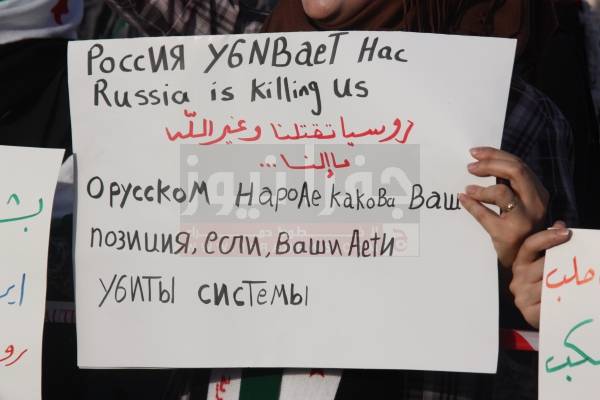 РОССИЯ УБИВАЕТ НАС
Russia is killing us
روسيا تقتلنا وغير الله
مالنا ...
О РУССКОМ НАРОДЕ КАКОВА ВАШ
ПОЗИЦИЯ, ЕСЛИ, ВАШИ ДЕТИ
УБИТЫ СИСТЕМЫ
جفرا نيوز
حلب